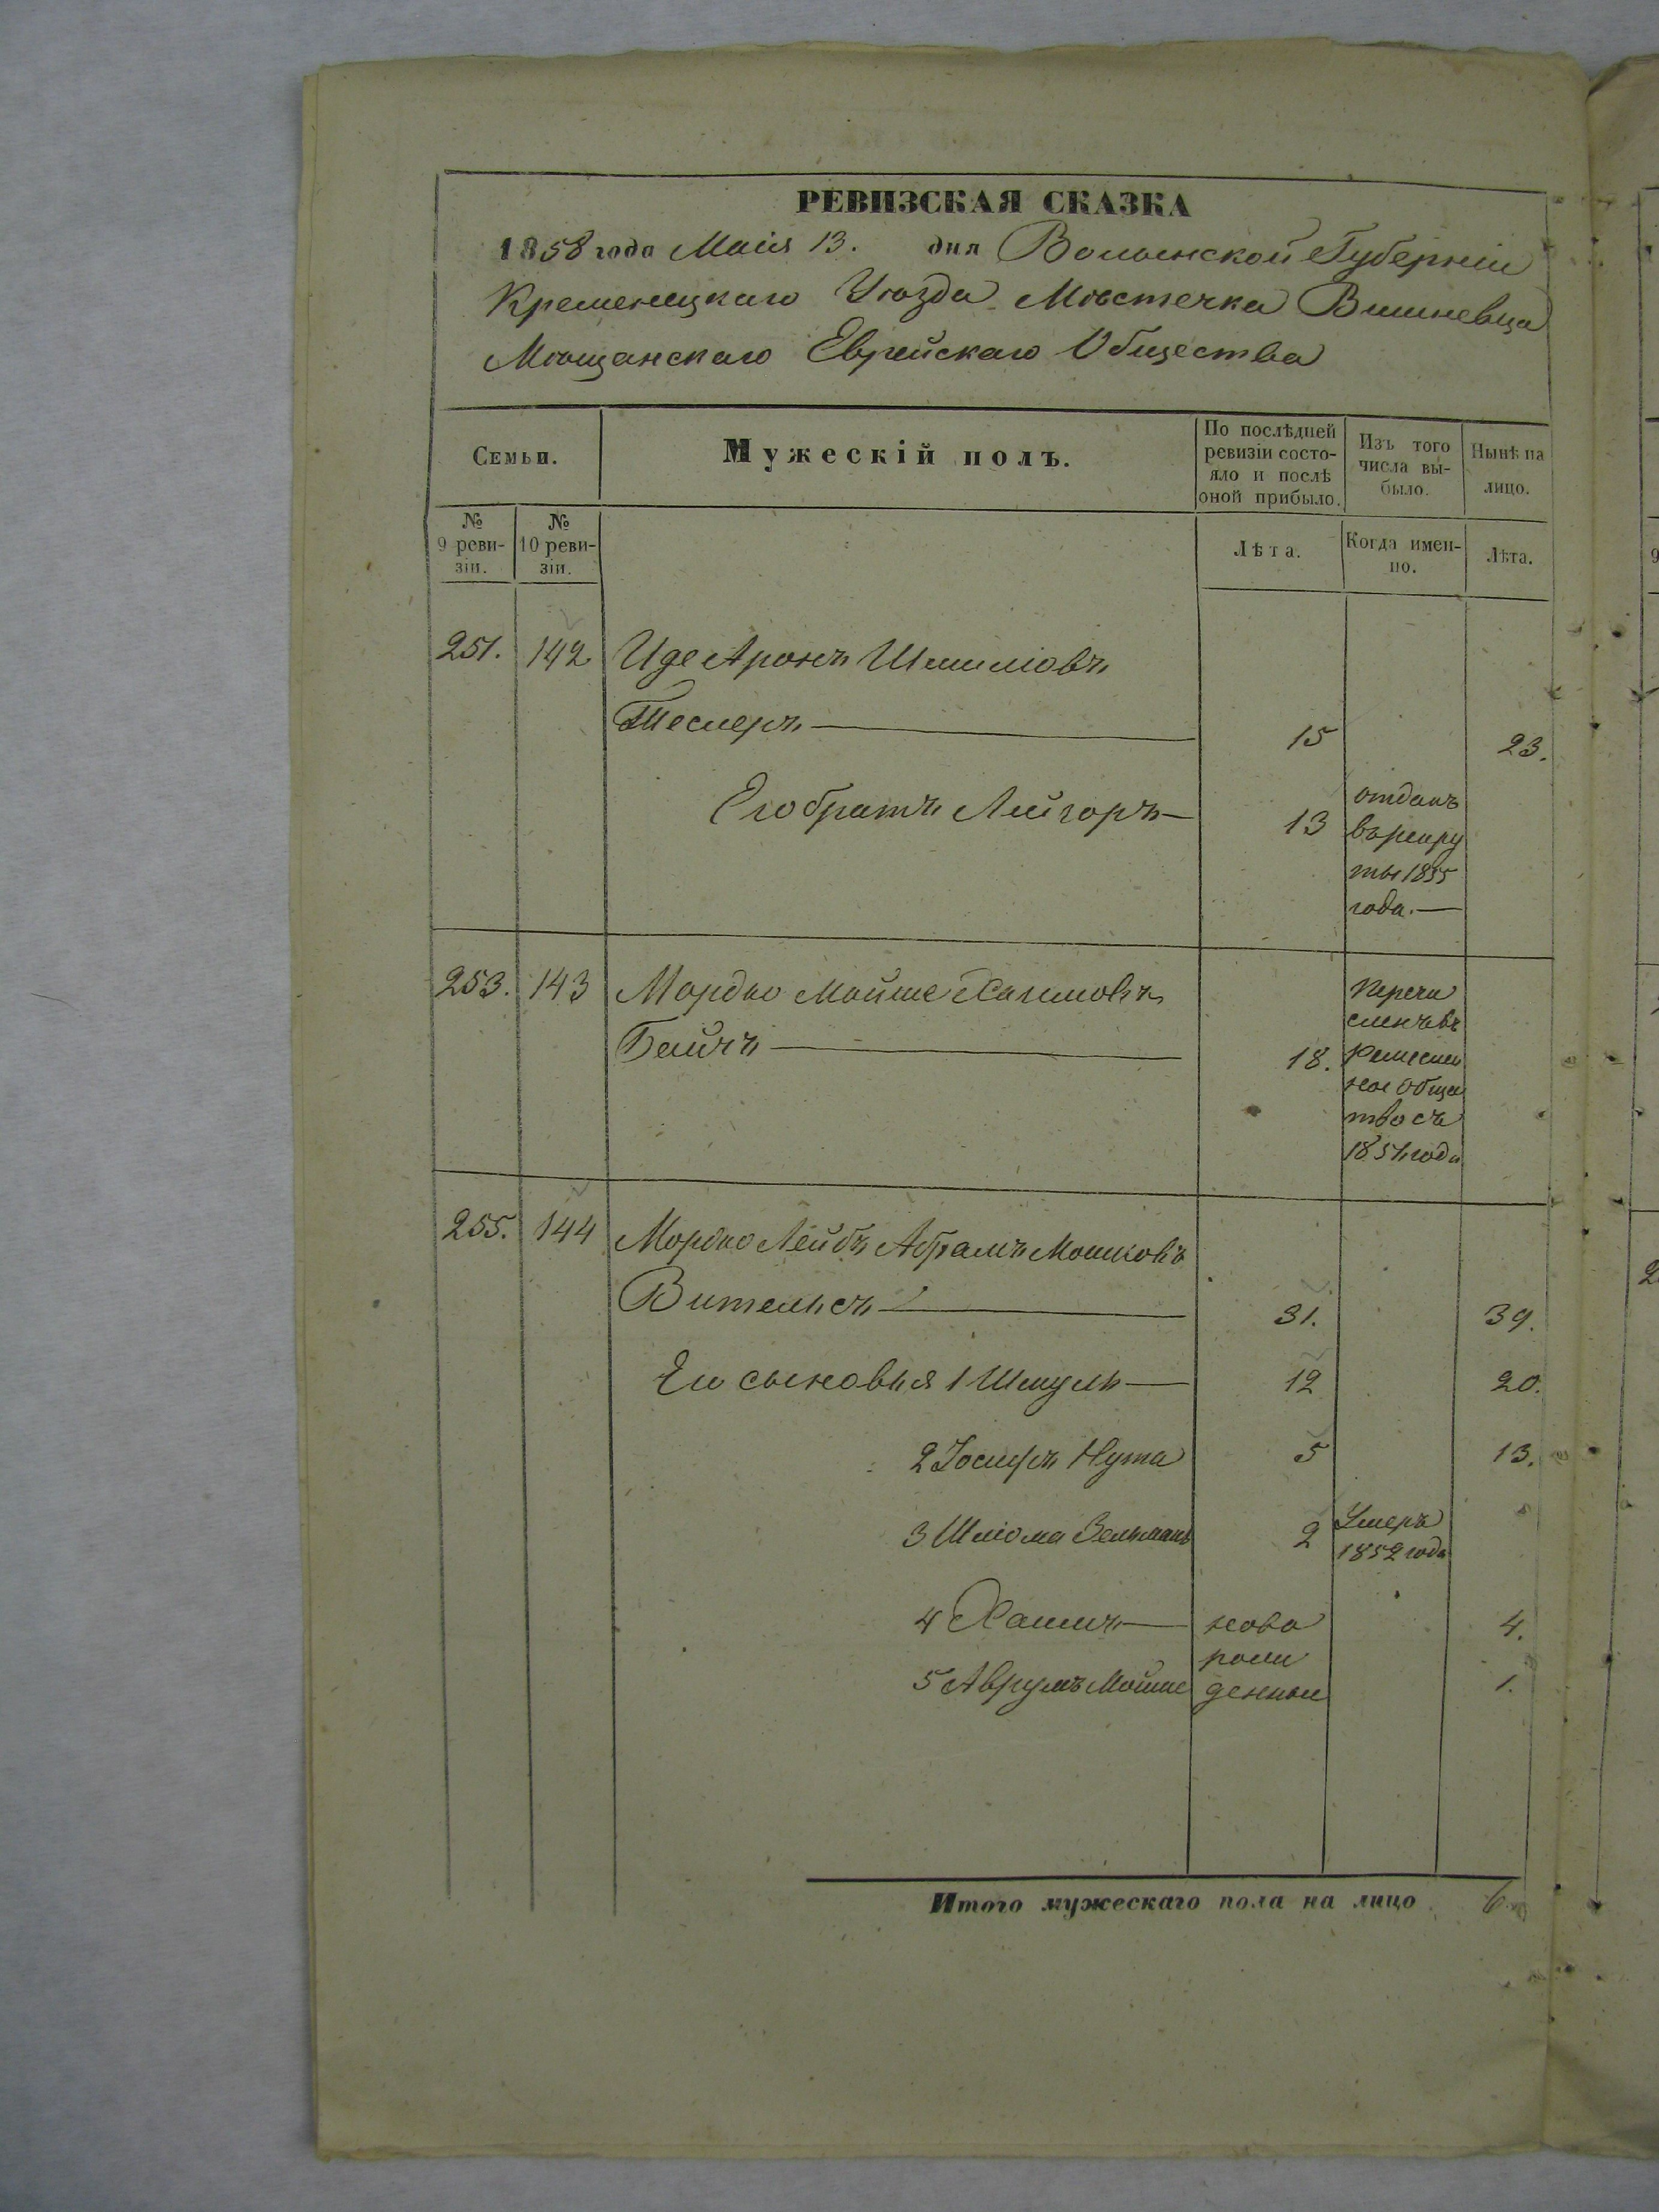 РЕВИЗСКАЯ СКАЗКА
1858 года Маія 13. дня Волынской Губерніи
Кременецкаго Уѣзда Мѣстечка Вишневца
Мѣщанскаго Еврейскаго Общества
Семьи.
Мужескій полъ.
По послѣдней ревизіи состо-
яло и послѣ
оной прибыло.
Изъ того
числа вы-
было.
Нынѣ на
лицо.
№
9 реви-
зіи.
№
10 реви-
зіи.
Лѣта.
Когда имен-
но.
Лѣта.
251. 142 Иде Аронъ Шмиловъ
15 23.
Его братъ Лейзоръ — 13
отданъ
въ рекру
ты 1855
года. —
253. 143 Мордко Мойше Хаимовъ
18.
Перечи
сленъ въ
ремеслен
ное общес
тво съ
1851 года
255. 144 Мордко Лейбъ Абрамъ Мошковъ
Вительсъ — 31. 39.
Его сыновья 1 Шмуль — 12 20.
2 Іосифъ Нута 5 13.
3 Шліома Зельманъ 2 Умеръ
1852 года
4 Хаимъ — ново 4.
рож
5 Аврумъ Мойше денные 1.
Итого мужескаго пола на лицо 6